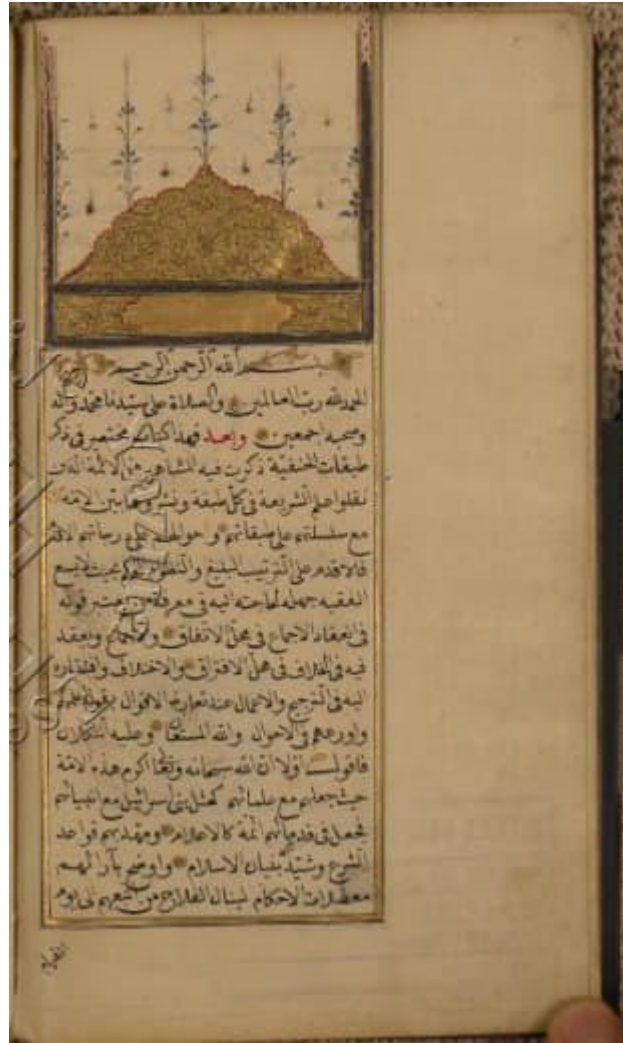 بسم الله الرحمن الرحيم
الحمد لله رب العالمين والصلاة على سيدنا محمد وآله
وصحبه اجمعين وبعد فهذا كتاب مختصر فى ذكر
طبقات الحنفية ذكرت فيه المشاهير من الائمة الذين
نقلوا علم الشريعة فى كل طبقة ونشروها بين الامة
مع سلسلتهم على طبقاتهم واحوالهم على درجاتهم الاقدم
فالاقدم على الترتيب البليغ والنظم بحيث لا يسع
الفقيه جهله لحاجته اليه فى معرفة من يعتبر قوله
فى انعقاد الاجماع فى محل الاتفاق ويعتد
فيه فى الخلاف فى محل الافتراق والاختلاف وافتقاره
اليه فى الترجيح والاعمال عند تعارض الاقوال بقول اعلمهم
واورعهم فى الاحوال والله المستعان وعليه التكلان
فاقول اولا ان الله سبحانه وتعا اكرم هذه الامة
حيث جعلهم مع علمائهم كمثل بنى اسرائيل مع انبيائهم
فجعل فى قدمائهم ائمة كالاعلام ومهد بهم قواعد
الشرع وشيد بنيان الاسلام واوضح بآرائهم
معضلات الاحكام لينال الفلاح من اتبعهم الى يوم
القيام